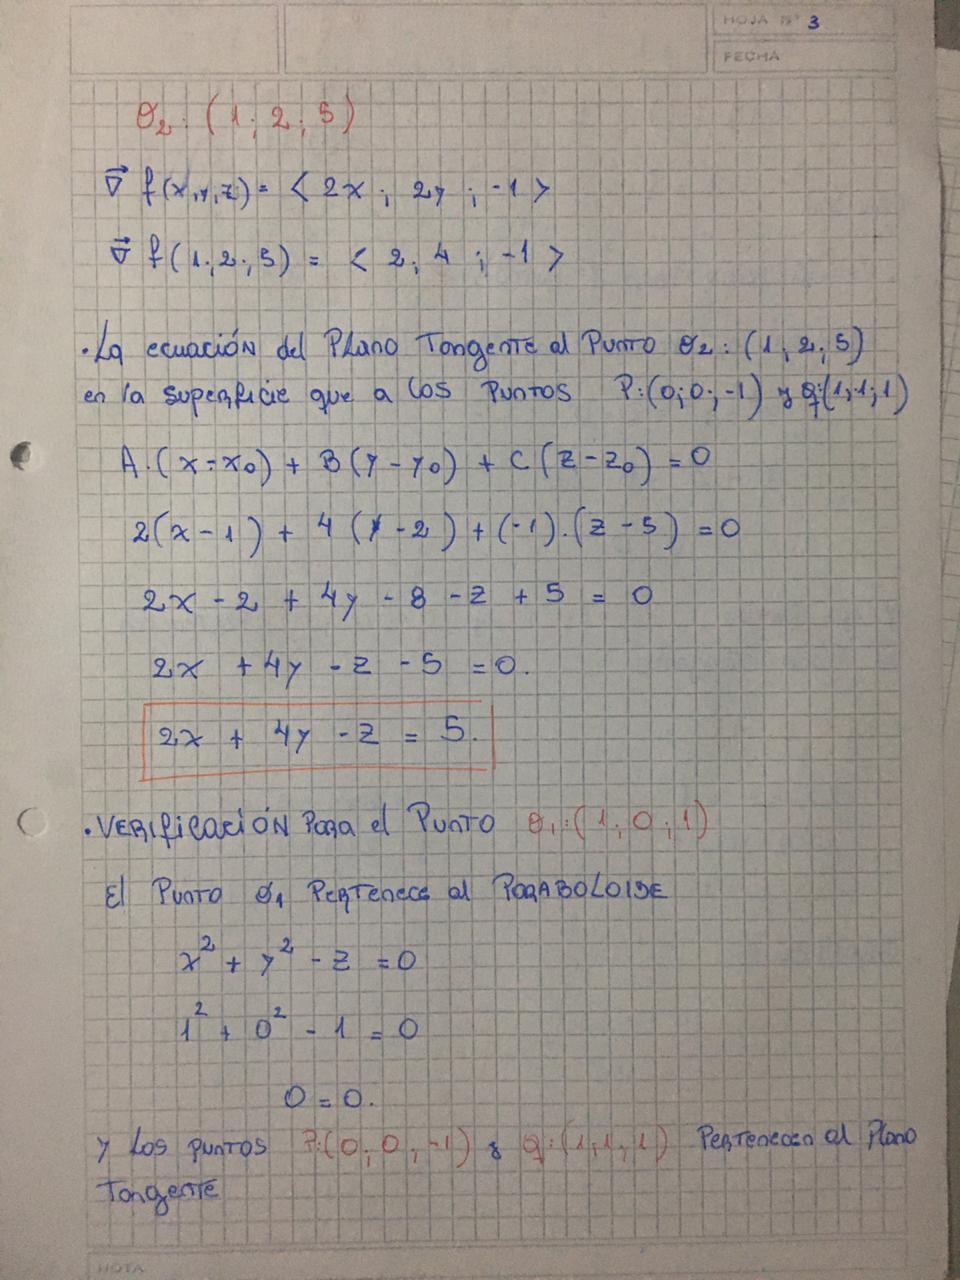 HOJA Nº 3
FECHA
θ₂: (1; 2; 5)
∇⃗ f(x,y,z) = < 2x ; 2y ; -1 >
∇⃗ f(1; 2; 5) = < 2; 4 ; -1 >
• La ecuación del Plano Tangente al Punto θ₂: (1, 2; 5)
en la superficie que a los Puntos P:(0; 0; -1) y q:(1; 1; 1)
A.(x-x₀) + B(y-y₀) + C(z-z₀) = 0
2(x-1) + 4(y-2) + (-1).(z-5) = 0
2x - 2 + 4y - 8 - z + 5 = 0
2x + 4y - z - 5 = 0.
2x + 4y - z = 5.
• Verificación Para el Punto θ₁:(1; 0; 1)
El Punto θ₁ Pertenece al Paraboloide
x² + y² - z = 0
1² + 0² - 1 = 0
0 = 0.
y Los puntos P:(0; 0; -1) y q:(1; 1; 1) Pertenecen al Plano
Tangente
NOTA